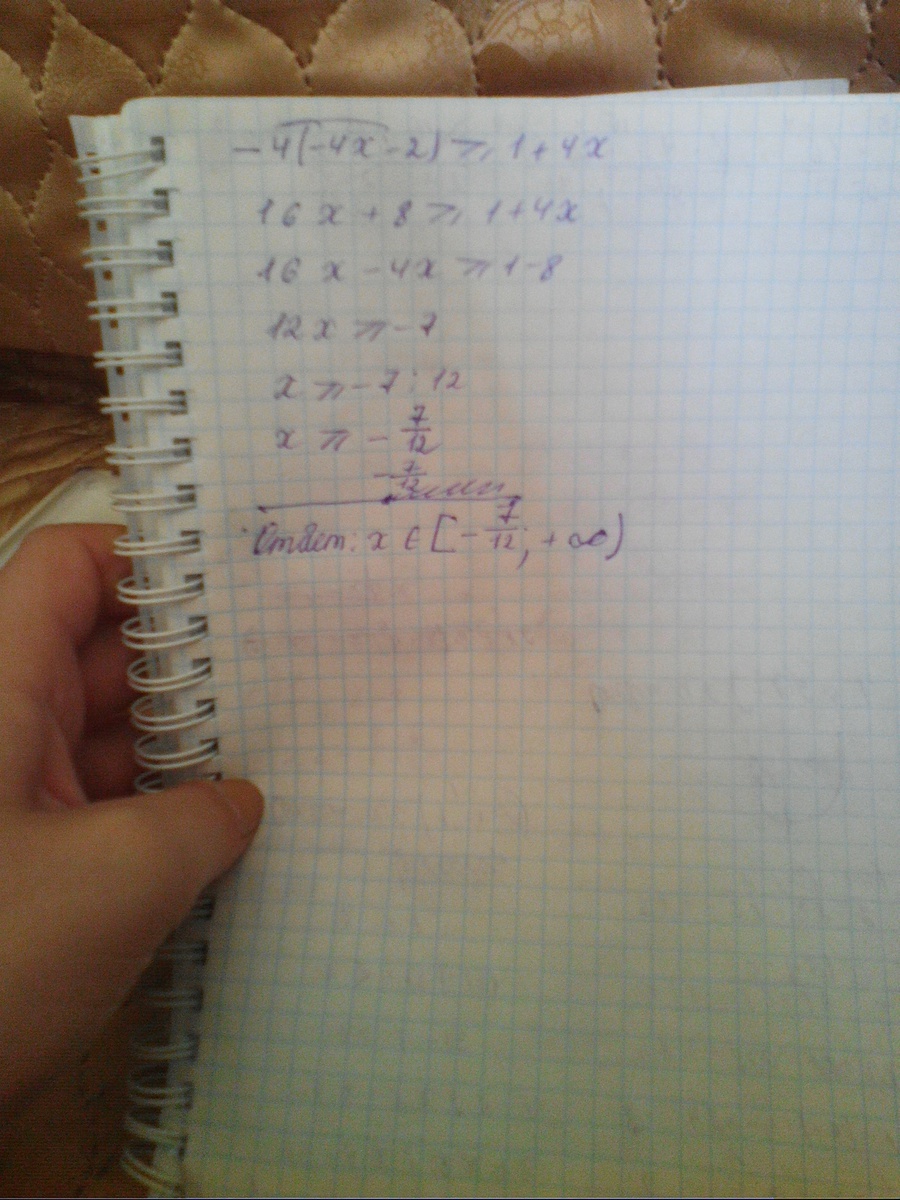 -4(-4x-2) ⩾ 1+4x
16x + 8 ⩾ 1+4x
16x - 4x ⩾ 1-8
12x ⩾ -7
x ⩾ -7 : 12
x ⩾ - 7/12
-7/12
Ответ: x ∈ [-7/12; +∞)